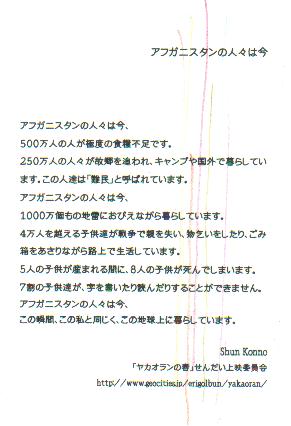 アフガニスタンの人々は今
アフガニスタンの人々は今、
500万人の人が極度の食糧不足です。
250万人の人々が故郷を追われ、キャンプや国外で暮らしてい
ます。この人達は「難民」と呼ばれています。
アフガニスタンの人々は今、
1000万個もの地雷におびえながら暮らしています。
4万人を越える子供達が戦争で親を失い、物乞いをしたり、ごみ
箱をあさりながら路上で生活しています。
5人の子供が産まれる間に、8人の子供が死んでしまいます。
7割の子供達が、字を書いたり読んだりすることができません。
アフガニスタンの人々は今、
この瞬間、この私と同じく、この地球上に暮らしています。
Shun Konno
「ヤカオランの春」せんだい上映委員会
http://www.geocities.jp/erigolbun/yakaoran/